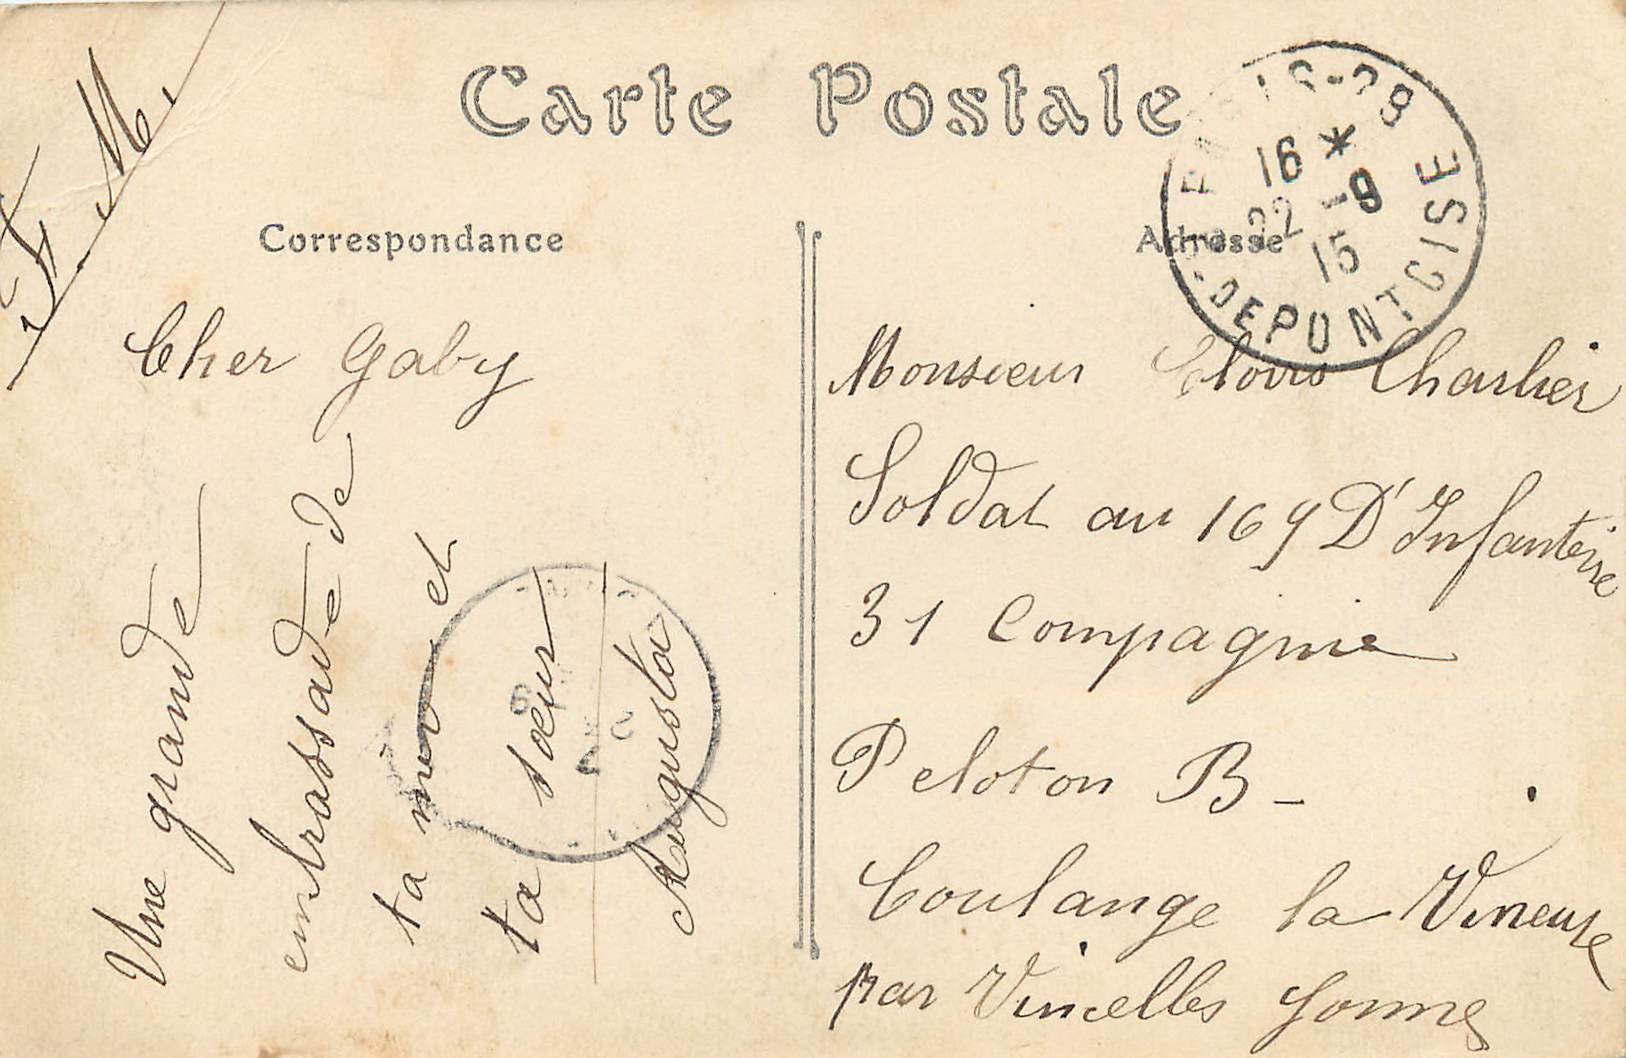 F. M.
Carte Postale
Correspondance
Adresse
PARIS-28
16 *
22 -9
15
DEPONTOISE
Cher Gaby
Une grande
embrassade de
ta mère et
ta soeur
Augusta
Monsieur Clovis Charlier
Soldat au 169 D'Infanterie
31 Compagnie
Peloton B-
Coulange la Vineuse
par Vincelles Yonne